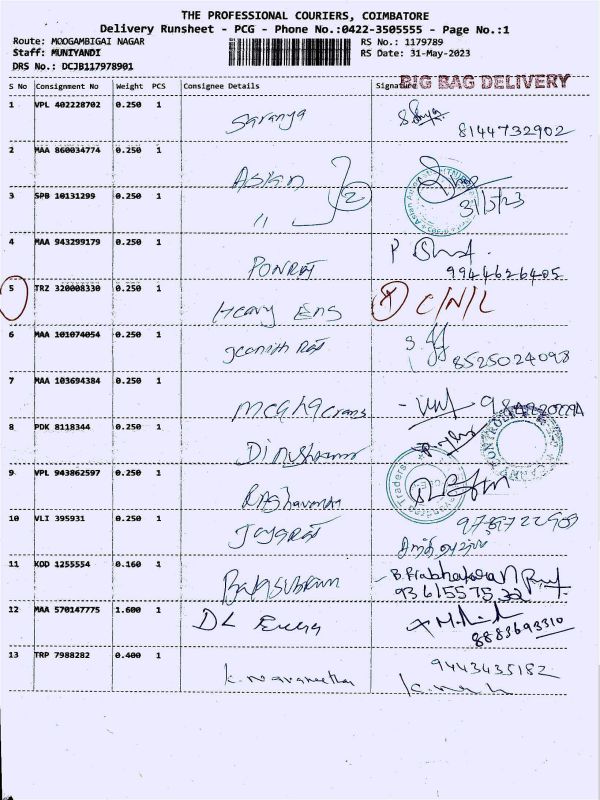 THE PROFESSIONAL COURIERS, COIMBATORE
Delivery Runsheet - PCG - Phone No.:0422-3505555 - Page No.:1
Route: MOOGAMBIGAI NAGAR
RS No.: 1179789
Staff: MUNIYANDI
RS Date: 31-May-2023
DRS No.: DCJB117978901
BIG BAG DELIVERY
S No Consignment No Weight PCS Consignee Details Signature
1 VPL 402228702 0.250 1 Saranya
8144732902
2 MAA 860034774 0.250 1 Asian 2
3 SPB 10131299 0.250 1 11 31/5/23
4 MAA 943299179 0.250 1 Ponraj
9944626405
5 TRZ 320008330 0.250 1 Heavy Eng C/N/L
6 MAA 101074054 0.250 1
8525024098
7 MAA 103694384 0.250 1
8 PDK 8118344 0.250 1
9 VPL 943862597 0.250 1
10 VLI 395931 0.250 1 Jayaraj
11 KDD 1255554 0.160 1 Balasubram B. Prabhakaran
12 MAA 570147775 1.600 1 DL
8883693310
13 TRP 7988282 0.400 1 K. Navaneetha 9443435182